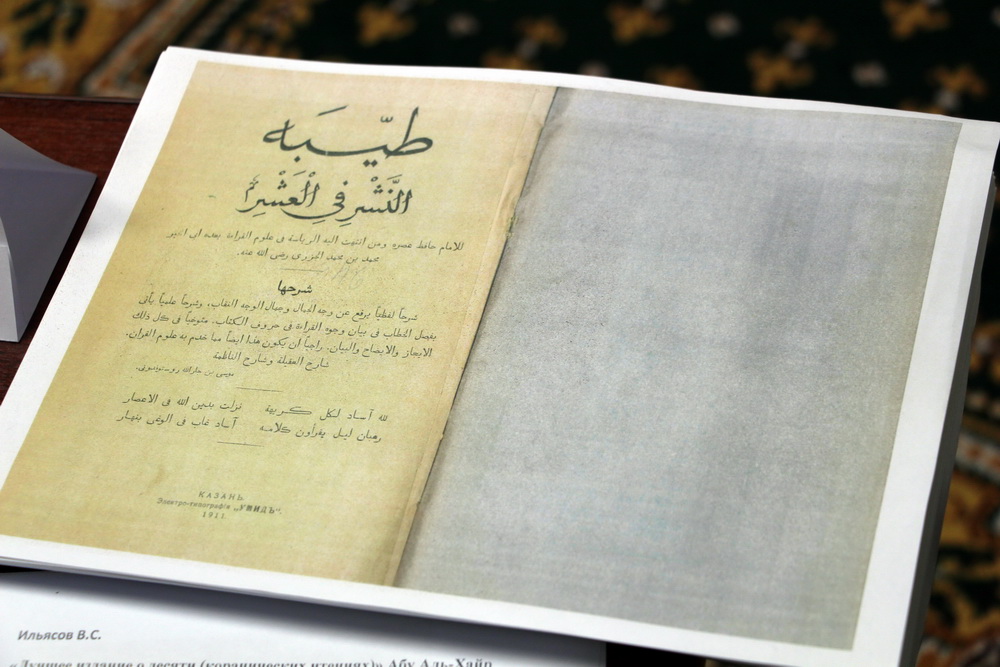 طيّبه
النَّشْر في الْعَشْرِ
للامام حافظ عصره ومن انتهت اليه الرياسة فى علوم القراءة بعده ابى الخير
محمد بن محمد الجزرى رضى الله عنه.
شرحها
شرحاً لفظياً يرفع عن وجه الجمال وجمال الوجه النقاب، وشرحاً علمياً يأتى
بفصل الخطاب فى بيان وجوه القراءة فى حروف الكتاب، متوخياً فى كل ذلك
الايجاز والايضاح والبيان. راجياً ان يكون هذا ايضاً مما خدم به علوم القران.
شارح العقيلة وشارح الناظمة
موسى بن جارالله روستوفدونى.
لله آساد لكل كريهة نزلت بدين الله فى الاعصار
رهبان ليل يقرأون كلامه آساد غاب فى الوغى بنهار
КАЗАНЬ
Электро-типографія „УМИДЪ“.
1911
Ильясов В.С.
«Лучшее издание о десяти (коранических чтениях)» Абу Аль-Хайр